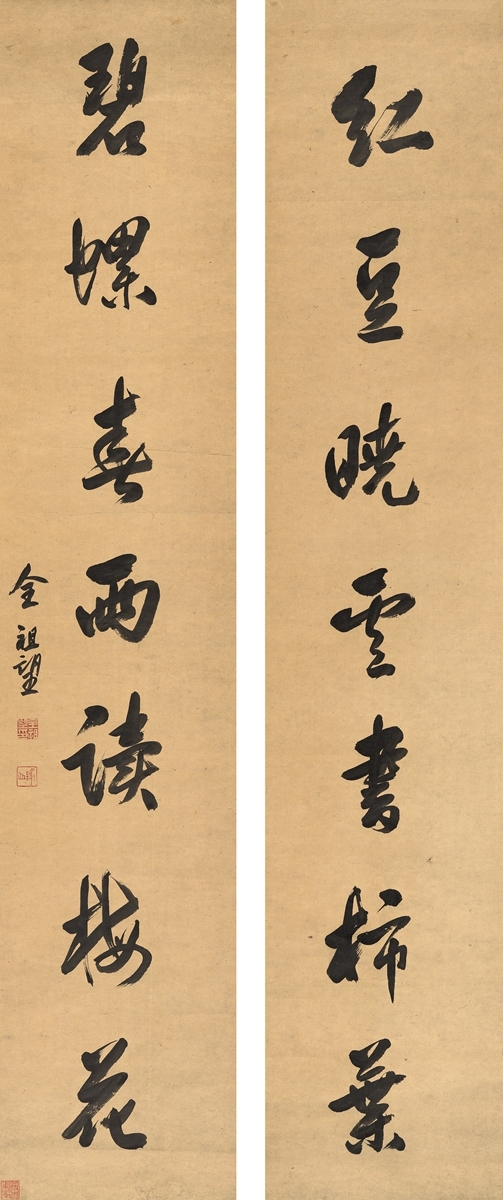 红豆晓云書柿葉
碧螺春雨读梅花
全祖望